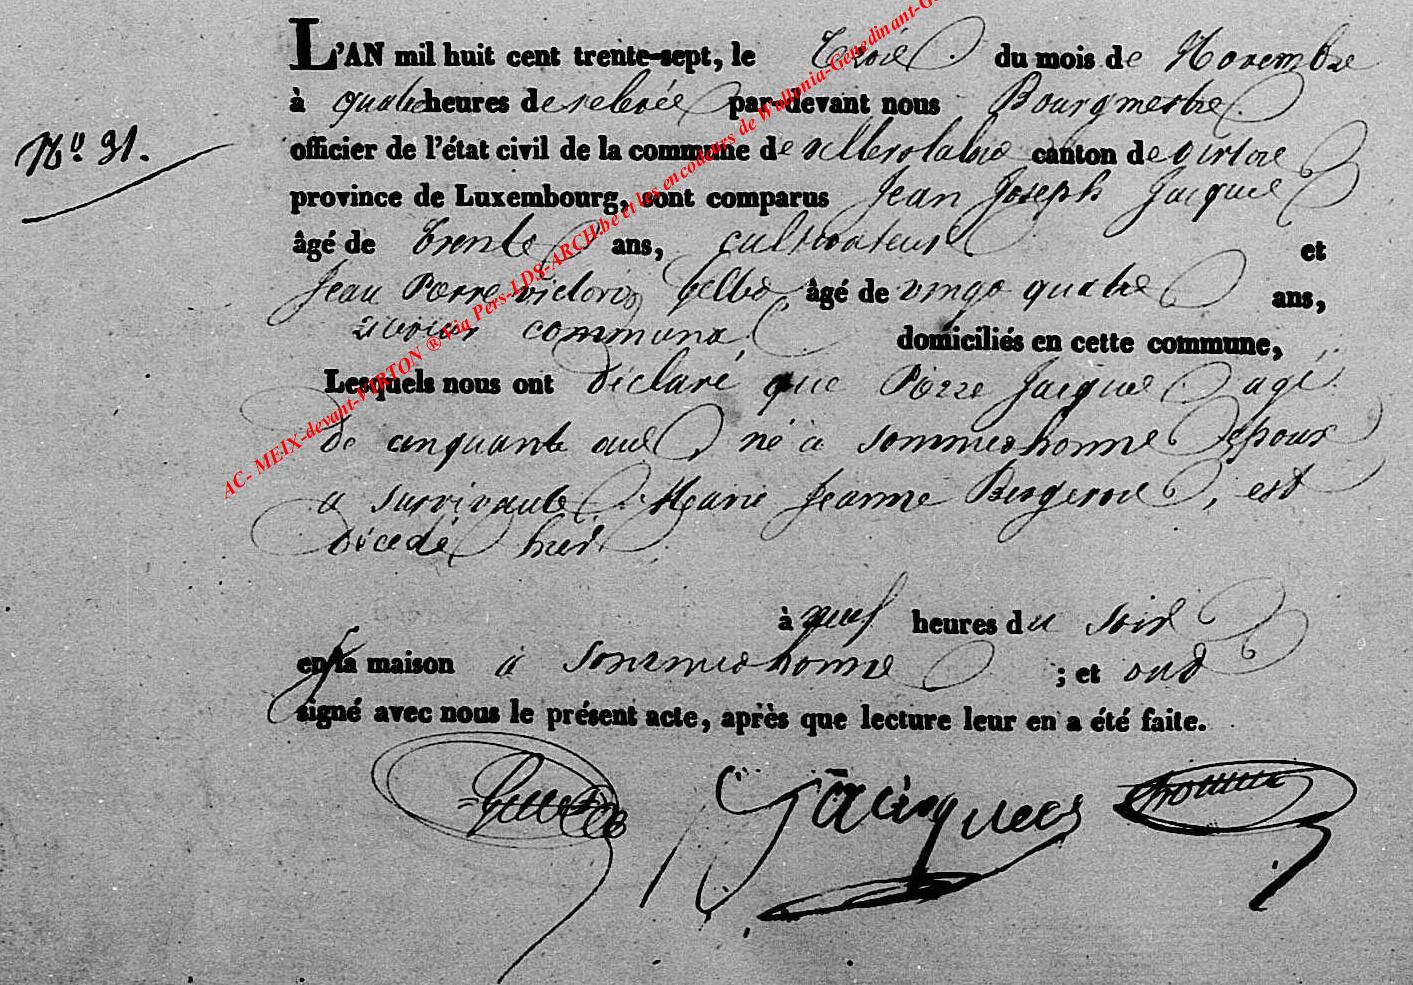 L'AN mil huit cent trente-sept, le trois du mois de Novembre
à quatre heures de relevée par-devant nous Bourgmestre
N° 31.
officier de l'état civil de la commune de Villers la loue canton de Virton
province de Luxembourg, sont comparus Jean Joseph Jacques
âgé de trente ans, cultivateur et
Jean Pierre Victorin âgé de vingt quatre ans,
communal domiciliés en cette commune,
Lesquels nous ont déclaré que Pierre Jacques agé
de cinquante ans né à Sommethonne Epoux
a survivante Marie Jeanne Bergeron, est
décédé hier
à neuf heures du soir
en sa maison à Sommethonne ; et ont
signé avec nous le présent acte, après que lecture leur en a été faite.
Jacques
AC- MEIX-devant-VIRTON ® Via Pers-LDS-ARCH.be et les encodeurs de Wallonia-Genedinant-G